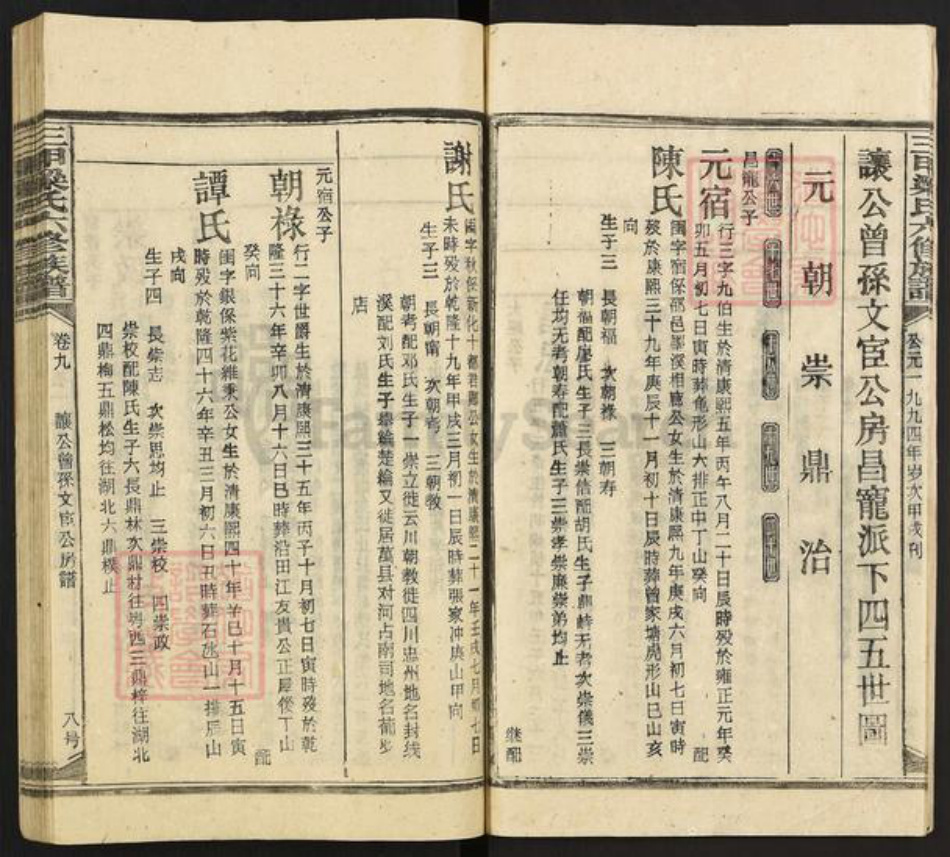 公元一九九四年岁次甲戌刊
讓公曾孫文宦公房昌寵派下四五世圖
元朝崇鼎治
昌寵公子
元宿
行三字九伯生於清康熙五年丙午八月二十日辰時殁於雍正元年癸
卯五月初七日寅時葬龟形山六排正中丁山癸向 配
陳氏
閨字宿保邵邑墨溪相應公女生於清康熙九年庚戌六月初七日寅時
殁於康熙三十九年庚辰十一月初十日辰時葬曾家塘虎形山巳山亥
向
生子三 長朝福 次朝祿 三朝寿
朝福配廖氏生子三長崇信配胡氏生子鼎峙无考次崇儀三崇
任均无考朝寿配蕭氏生子三崇孝崇廉崇弟均止
继配
謝氏
閨字秋保新化十都君卿公女生於清康熙二十一年壬戌七月初七日
未時殁於乾隆十九年甲戌三月初一日辰時葬張家冲庚山甲向
生子三 長朝甯 次朝考 三朝教
朝考配邓氏生子一崇立徙云川朝教徙四川忠州地名封线
溪配刘氏生子崇綸楚綸又徙居萬县对河占南司地名葡步
店
元宿公子
朝祿
行二字世爵生於清康熙三十五年丙子十月初七日寅時殁於乾
隆三十六年辛卯八月十六日巳時葬沿田江友貴公正屋後丁山
癸向 配
譚氏
閨字銀保紫花維秉公女生於清康熙四十年辛巳十月十五日寅
時殁於乾隆四十六年辛丑三月初六日丑時葬石氹山一排辰山
戌向
生子四 長崇志 次崇思均止 三崇校 四崇政
崇校配陳氏生子六長鼎林次鼎材往粤西三鼎梓往湖北
四鼎梅五鼎松均往湖北六鼎樸止
三甲梁氏六修族譜
卷九
讓公曾孫文宦公房譜
八号